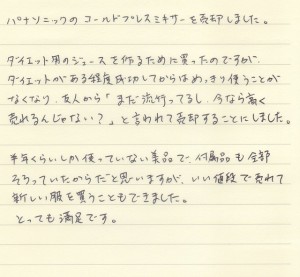 パナソニックのコールドプレスミキサーを売却しました。
ダイエット用のジュースを作るために買ったのですが、
ダイエットがある程度成功してからはめっきり使うことが
なくなり、友人から「まだ流行ってるし、今なら高く
売れるんじゃない？」と言われて売却することにしました。
半年くらいしか使っていない美品で、付属品も全部
そろっていたからだと思いますが、いい値段で売れて
新しい服を買うこともできました。
とっても満足です。